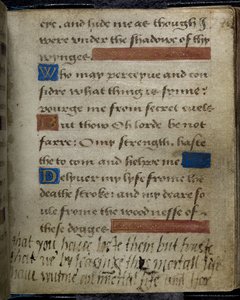 eye, and hide me as though I
were vnder the shadowe of thy
wynges.
Who may perceyue and con
sidre what thing is synne?
pourge me from secret euels
But thow Oh lorde be not
farre: O my strength, haste
the to com and helpe me
Delyuer my lyfe frome the
deathe stroke: and my deare so
ule frome the woodnesse of
these dogges
that you haue
that we by
haue